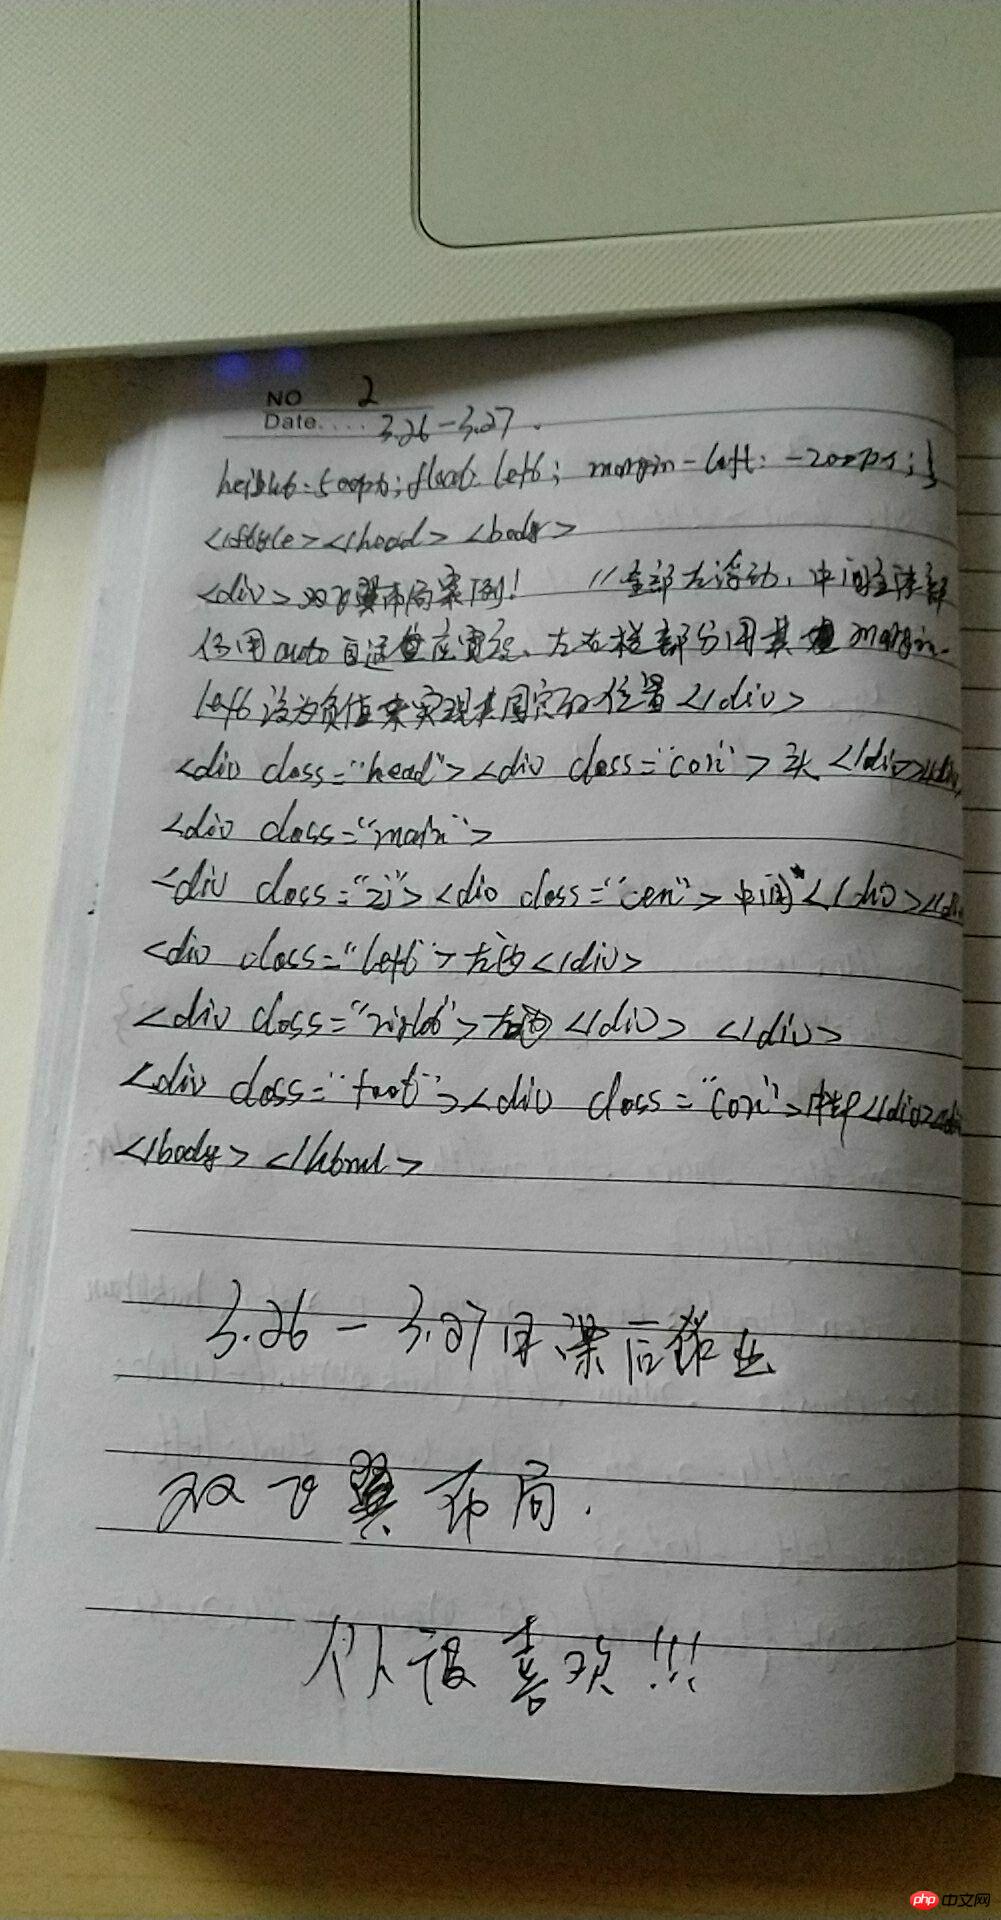 NO 2
Date.... 3.26-3.27.
height:500px;float:left; margin-left:-200px;}
</style></head><body>
<div>双飞翼布局案例! //全部左浮动,中间主体部
仅用auto自适应宽度、左右栏部分用其margin-
left设为负值来实现其固定的位置</div>
<div class="head"><div class="con">头</div></div>
<div class="main">
<div class="zi"><div class="cen">中间</div></di
<div class="left">左边</div>
<div class="right">右边</div> </div>
<div class="foot"><div class="con">中部</div></div
</body></html>
3.26-3.27日课后作业
双飞翼布局.
个人很喜欢!!!
php 中文网